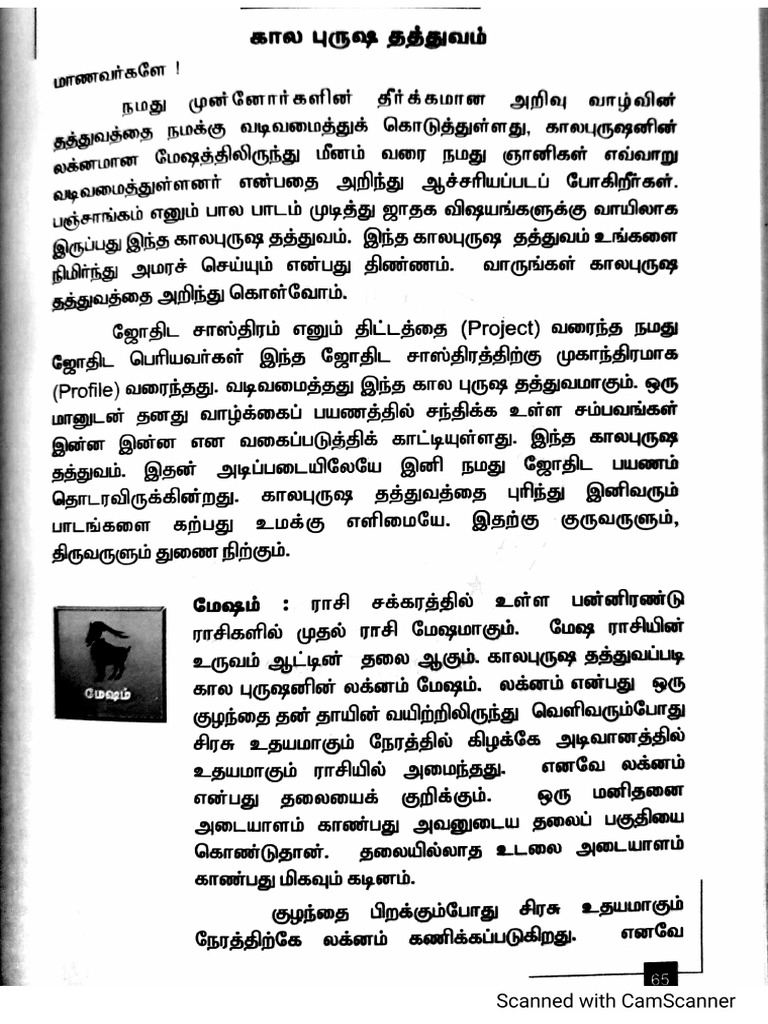 கால புருஷ தத்துவம்
மாணவர்களே !
நமது முன்னோர்களின் தீர்க்கமான அறிவு வாழ்வின்
தத்துவத்தை நமக்கு வடிவமைத்துக் கொடுத்துள்ளது, காலபுருஷனின்
லக்னமான மேஷத்திலிருந்து மீனம் வரை நமது ஞானிகள் எவ்வாறு
வடிவமைத்துள்ளனர் என்பதை அறிந்து ஆச்சரியப்படப் போகிறீர்கள்.
பஞ்சாங்கம் எனும் பால பாடம் முடித்து ஜாதக விஷயங்களுக்கு வாயிலாக
இருப்பது இந்த காலபுருஷ தத்துவம். இந்த காலபுருஷ தத்துவம் உங்களை
நிமிர்ந்து அமரச் செய்யும் என்பது திண்ணம். வாருங்கள் காலபுருஷ
தத்துவத்தை அறிந்து கொள்வோம்.
ஜோதிட சாஸ்திரம் எனும் திட்டத்தை (Project) வரைந்த நமது
ஜோதிட பெரியவர்கள் இந்த ஜோதிட சாஸ்திரத்திற்கு முகாந்திரமாக
(Profile) வரைந்தது. வடிவமைத்தது இந்த கால புருஷ தத்துவமாகும். ஒரு
மானுடன் தனது வாழ்க்கைப் பயணத்தில் சந்திக்க உள்ள சம்பவங்கள்
இன்ன இன்ன என வகைப்படுத்திக் காட்டியுள்ளது. இந்த காலபுருஷ
தத்துவம். இதன் அடிப்படையிலேயே இனி நமது ஜோதிட பயணம்
தொடரவிருக்கின்றது. காலபுருஷ தத்துவத்தை புரிந்து இனிவரும்
பாடங்களை கற்பது உமக்கு எளிமையே. இதற்கு குருவருளும்,
திருவருளும் துணை நிற்கும்.
மேஷம் : ராசி சக்கரத்தில் உள்ள பன்னிரண்டு
ராசிகளில் முதல் ராசி மேஷமாகும். மேஷ ராசியின்
உருவம் ஆட்டின் தலை ஆகும். காலபுருஷ தத்துவப்படி
கால புருஷனின் லக்னம் மேஷம். லக்னம் என்பது ஒரு
குழந்தை தன் தாயின் வயிற்றிலிருந்து வெளிவரும்போது
சிரசு உதயமாகும் நேரத்தில் கிழக்கே அடிவானத்தில்
உதயமாகும் ராசியில் அமைந்தது. எனவே லக்னம்
என்பது தலையைக் குறிக்கும். ஒரு மனிதனை
அடையாளம் காண்பது அவனுடைய தலைப் பகுதியை
கொண்டுதான். தலையில்லாத உடலை அடையாளம்
காண்பது மிகவும் கடினம்.
மேஷம்
குழந்தை பிறக்கும்போது சிரசு உதயமாகும்
நேரத்திற்கே லக்னம் கணிக்கப்படுகிறது. எனவே
65
Scanned with CamScanner